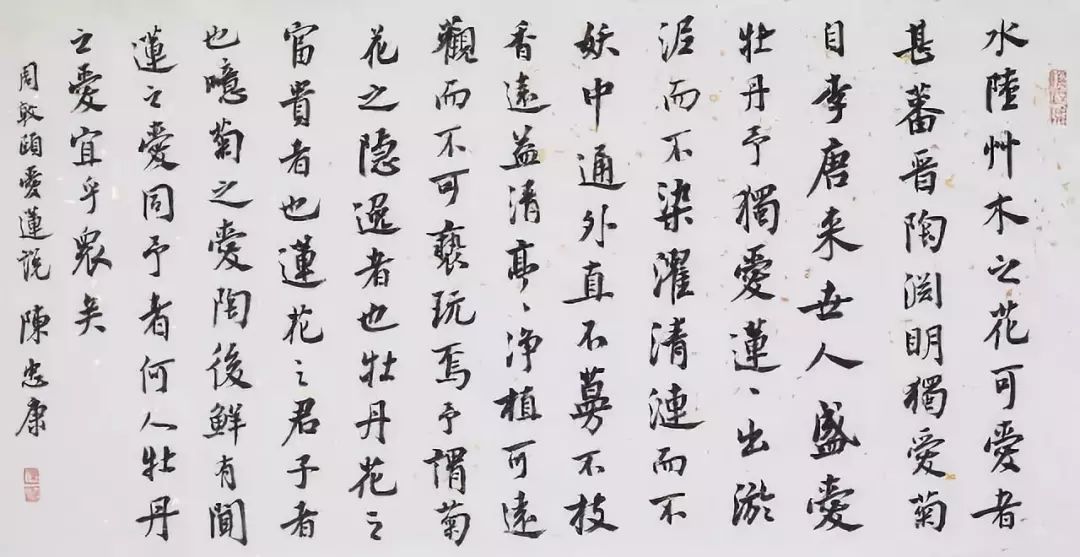 水陸艸木之花可愛者
甚蕃晉陶淵明獨愛菊
自李唐来世人盛愛
牡丹予獨愛蓮〻出淤
泥而不染濯清漣而不
妖中通外直不蔓不枝
香遠益清亭〻净植可遠
觀而不可褻玩焉予謂菊
花之隐逸者也牡丹花之
富貴者也蓮花之君子者
也噫菊之愛陶後鮮有聞
蓮之愛同予者何人牡丹
之愛宜乎眾矣
周敦頤愛蓮説 陳忠康